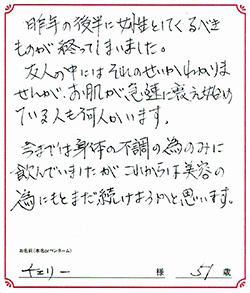 昨年の後半に女性としてくるべき
ものが終ってしまいました。
友人の中にはそれのせいかわかりま
せんが、お肌が急速に衰えはじめ
ている人も何人かいます。
今までは身体の不調の為のみに
飲んでいましたがこれからは美容の
為にもとまだ続けようかと思います。
お名前(本名orペンネーム)
チェリー 様 51 歳